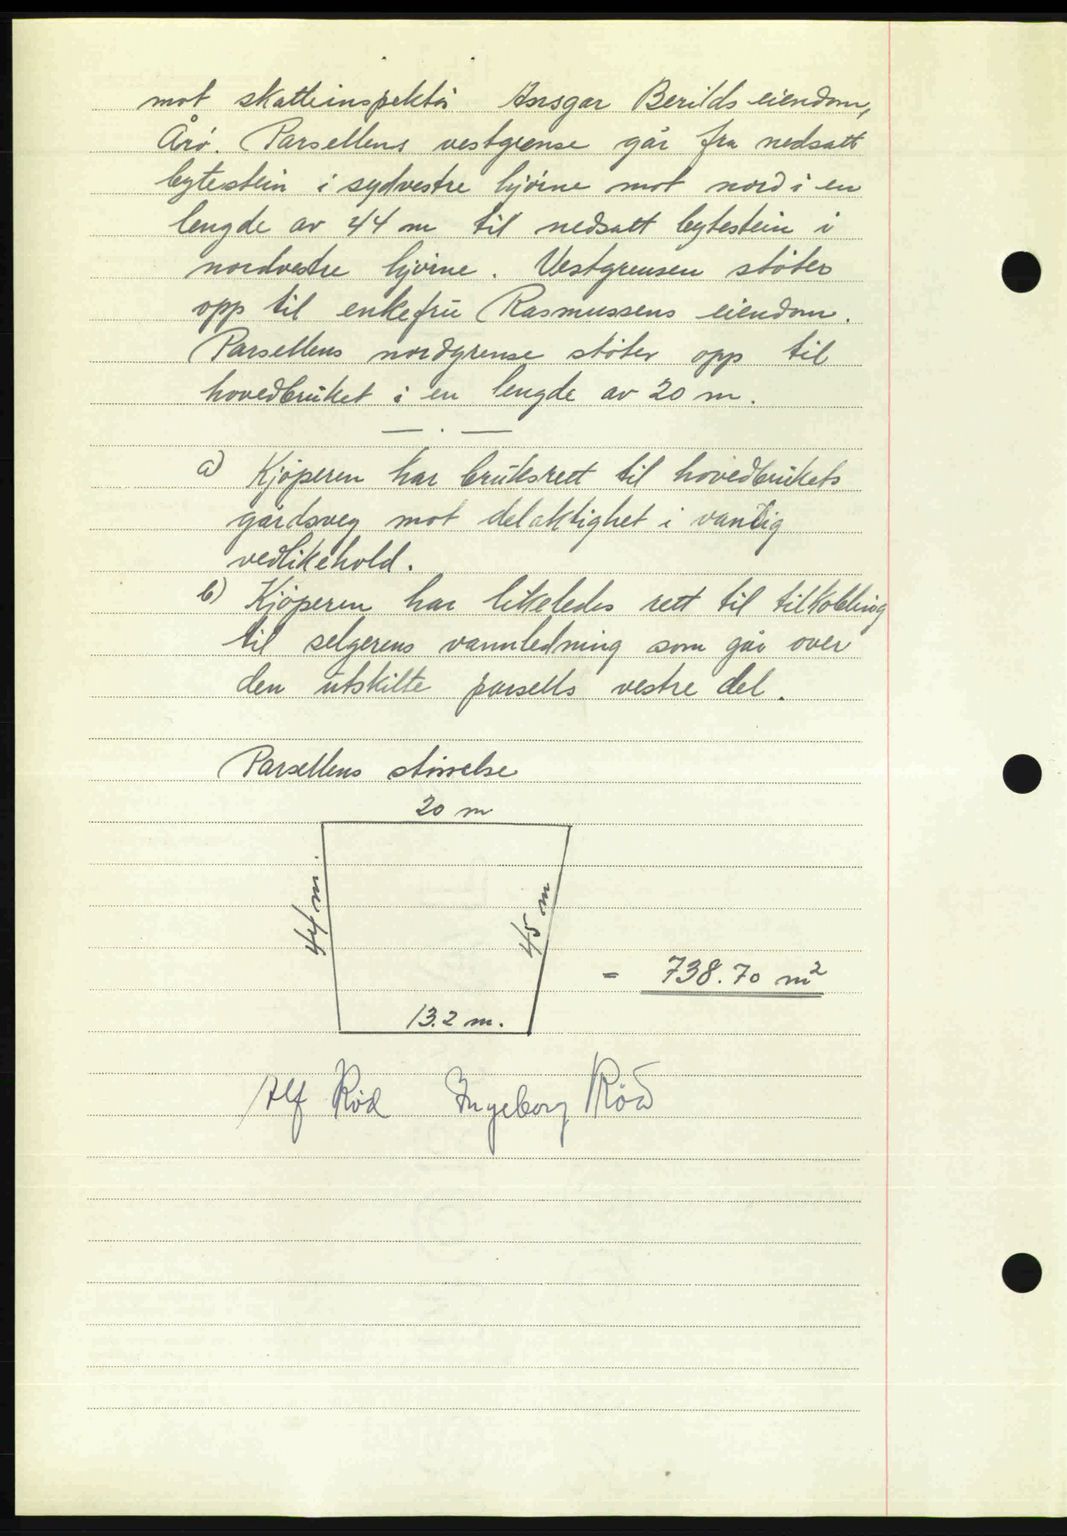 mot skatteinspektør Ansgar Berilds eiendom,
Årø. Parsellens vestgrense går fra nedsatt
bytestein i sydvestre hjörne mot nord i en
lengde av 44 m til nedsatt bytestein i
nordvestre hjörne. Vestgrensen støter
opp til enkefru Rasmussens eiendom.
Parsellens nordgrense støter opp til
hovedbruket i en lengde av 20 m.
— . —
a) Kjøperen har bruksrett til hovedbrukets
gårdsveg mot delaktighet i vanlig
vedlikehold.
b) Kjøperen har likeledes rett til tilkobling
til selgerens vannledning som går over
den utskilte parsells vestre del.
Parsellens størrelse
20 m
44 m.
45 m
= 738.70 m²
13.2 m.
Alf Röd Ingeborg Röd